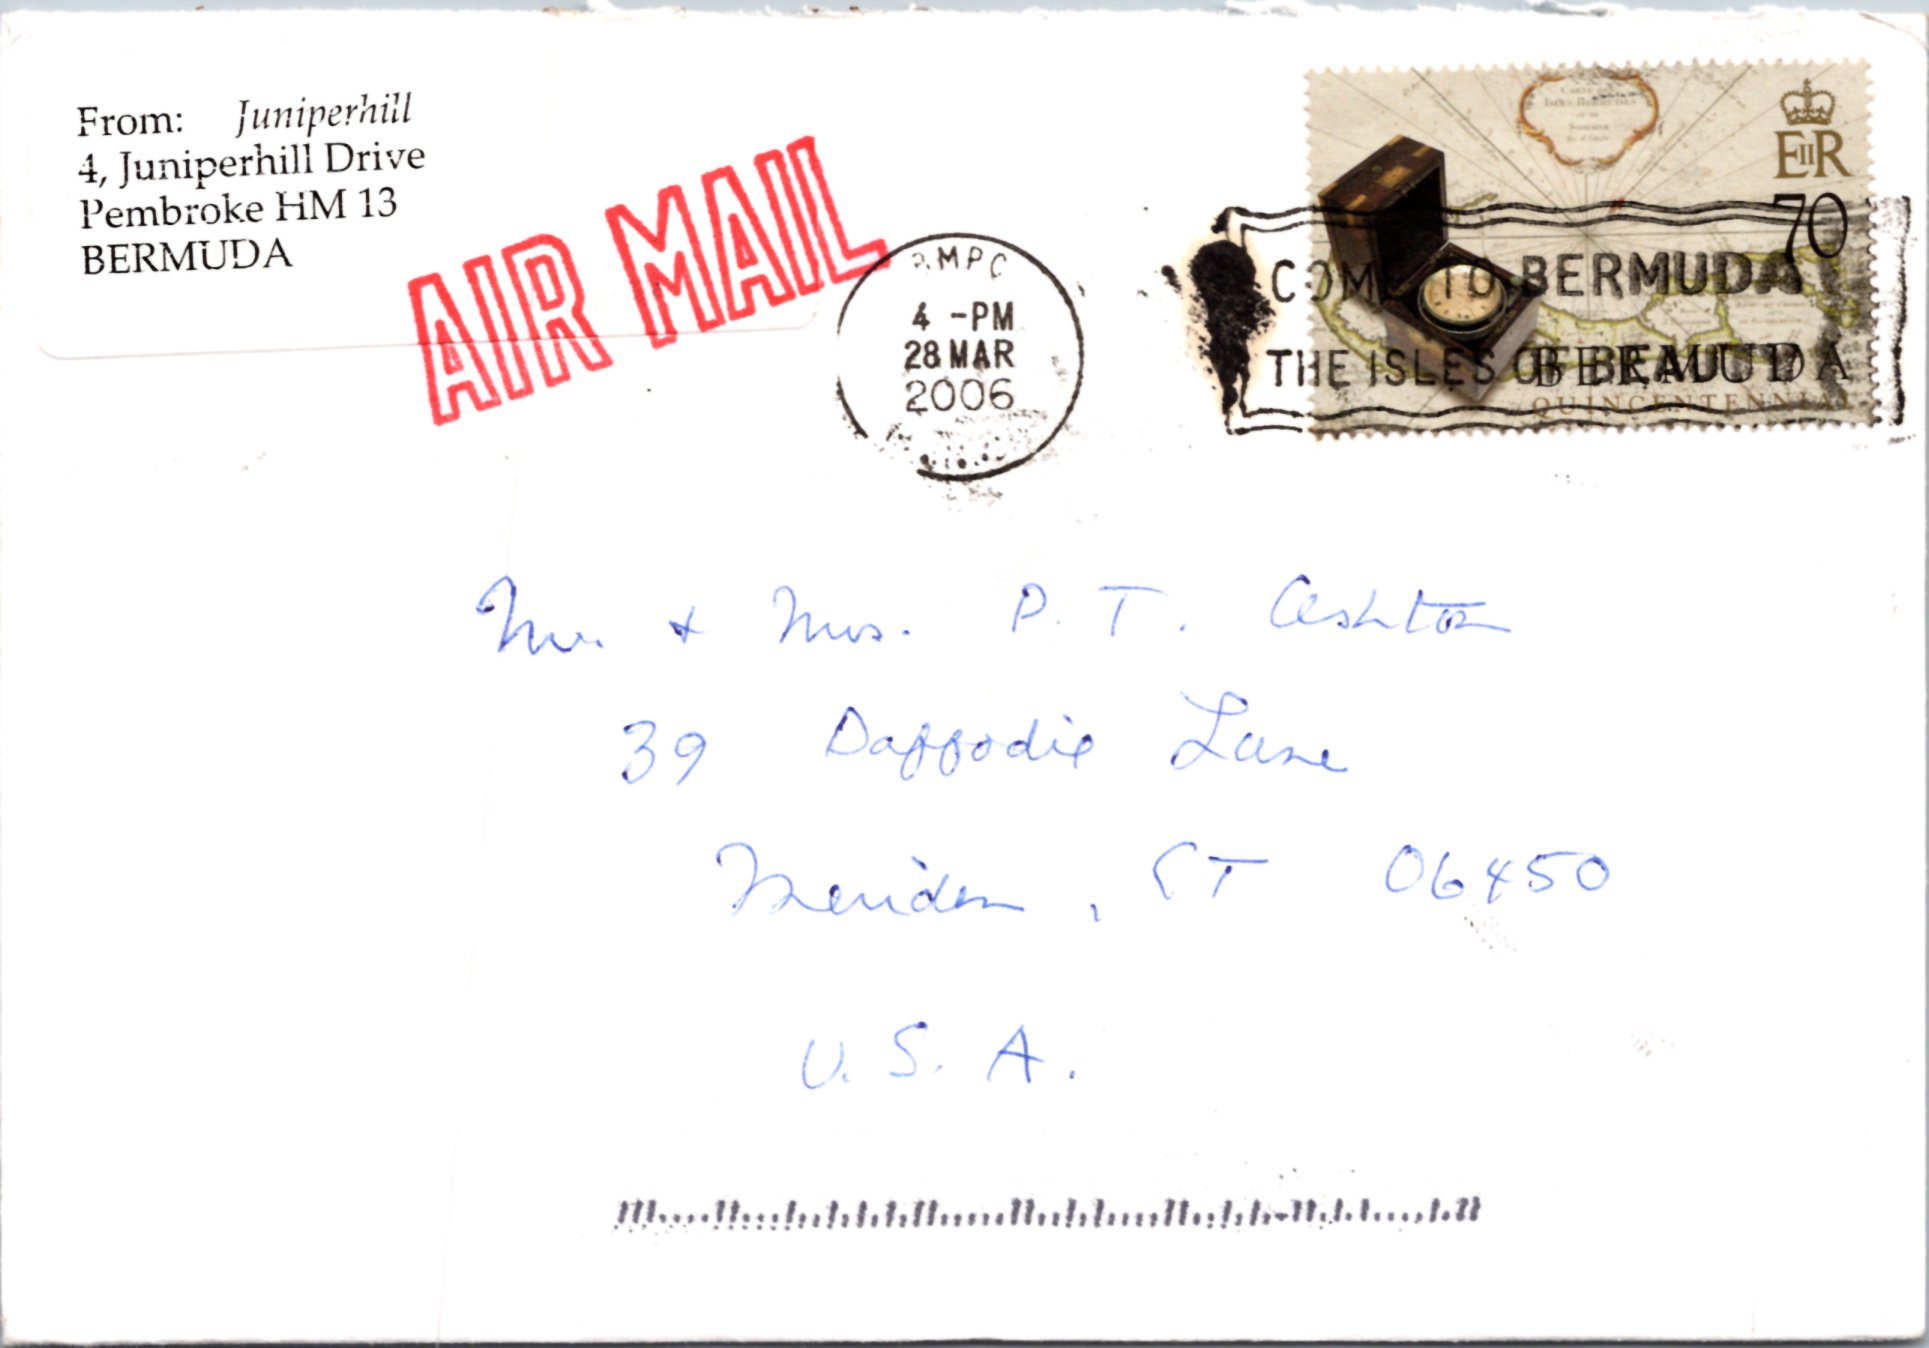 From: Juniperhill
4, Juniperhill Drive
Pembroke HM 13
BERMUDA
AIR MAIL
MPC
4 -PM
28 MAR
2006
EIIR
70
COME TO BERMUDA
THE ISLES OF BEAUTY
BERMUDA
QUINCENTENNIAL
Mr. + Mrs. P. T. Ashton
39 Daffodil Lane
Meriden, CT 06450
U. S. A.